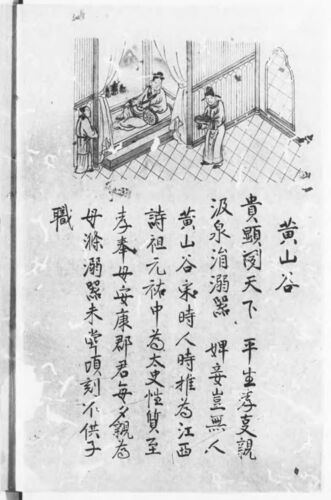 黄山谷
貴顯聞天下　平生孝事親
汲泉涓溺器　婢妾豈無人
黄山谷宋時人時推為江西
詩祖元祐中為太史性質至
孝奉母安康郡君每夕親為
母滌溺器未嘗頃刻不供子
職